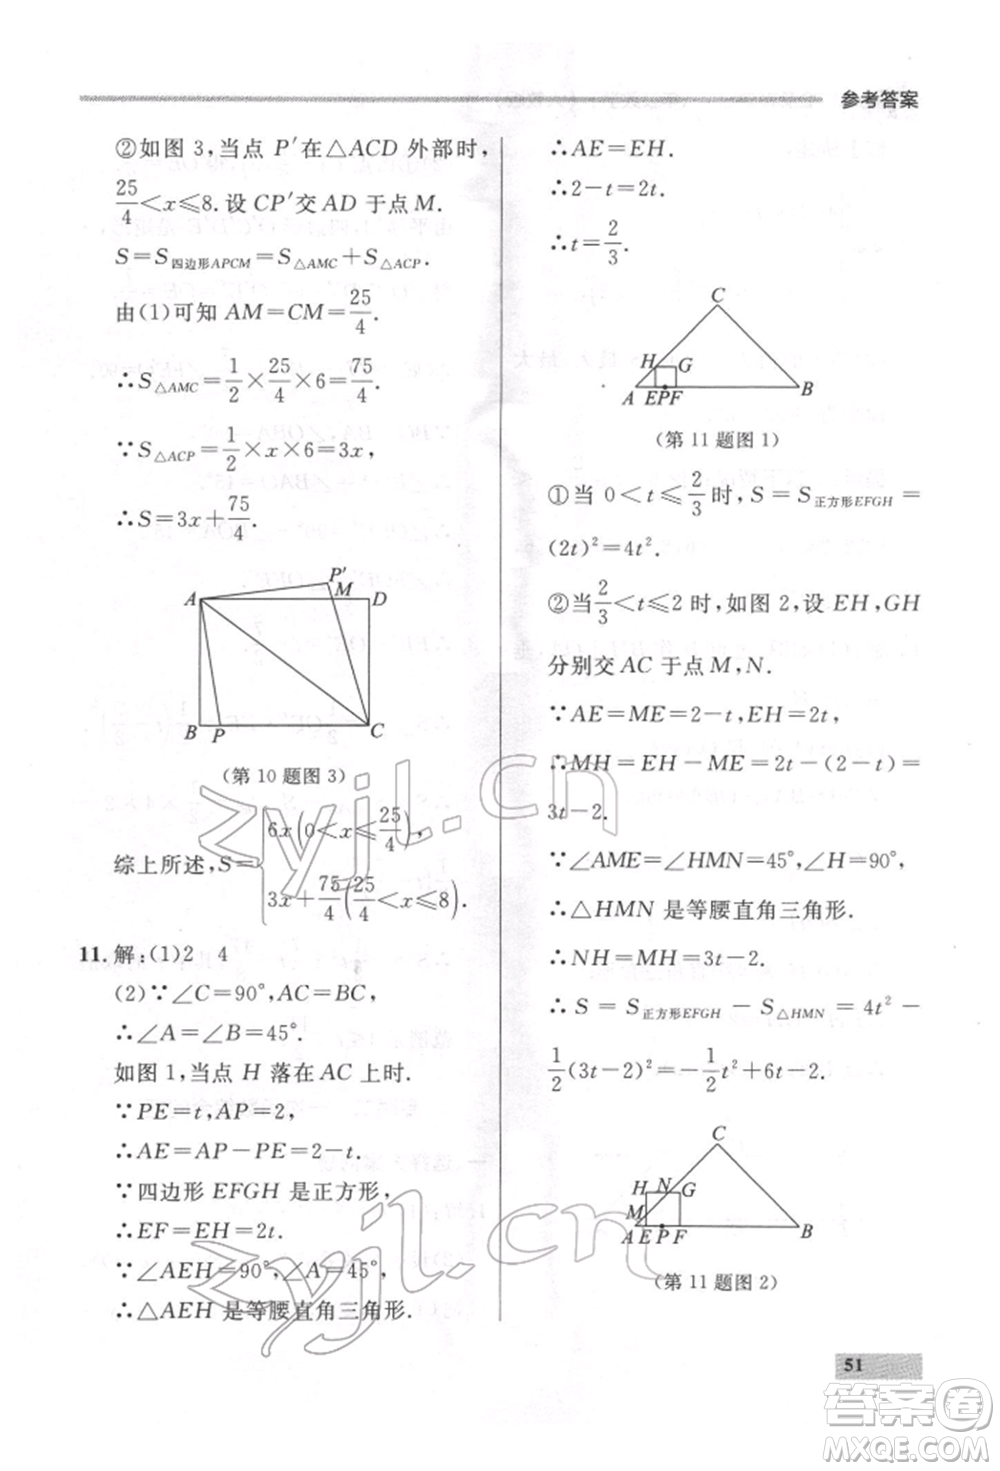 参考答案
②如图 3,当点 P′在△ACD 外部时,
25/4<x≤8.设 CP′交 AD 于点 M.
S=S四边形APCM=S△AMC+S△ACP.
由(1)可知 AM=CM=25/4.
∴S△AMC=1/2×25/4×6=75/4.
∵S△ACP=1/2×x×6=3x,
∴S=3x+75/4.
P′
A M D
B P C
(第 10 题图 3)
综上所述,S={6x(0<x≤25/4),
3x+75/4(25/4<x≤8).
11.解:(1)2 4
(2)∵∠C=90°,AC=BC,
∴∠A=∠B=45°.
如图 1,当点 H 落在 AC 上时.
∵PE=t,AP=2,
∴AE=AP-PE=2-t.
∵四边形 EFGH 是正方形,
∴EF=EH=2t.
∵∠AEH=90°,∠A=45°,
∴△AEH 是等腰直角三角形.
∴AE=EH.
∴2-t=2t.
∴t=2/3.
C
H G
A EPF B
(第 11 题图 1)
①当 0<t≤2/3时,S=S正方形EFGH=
(2t)²=4t².
②当2/3<t≤2时,如图 2,设 EH,GH
分别交 AC 于点 M,N.
∵AE=ME=2-t,EH=2t,
∴MH=EH-ME=2t-(2-t)=
3t-2.
∵∠AME=∠HMN=45°,∠H=90°,
∴△HMN 是等腰直角三角形.
∴NH=MH=3t-2.
∴S=S正方形EFGH-S△HMN=4t²-
1/2(3t-2)²=-1/2t²+6t-2.
C
H N G
M
A E P F B
(第 11 题图 2)
51
zyjl.cn
zyjl.cn
答案圈
MXQE.COM